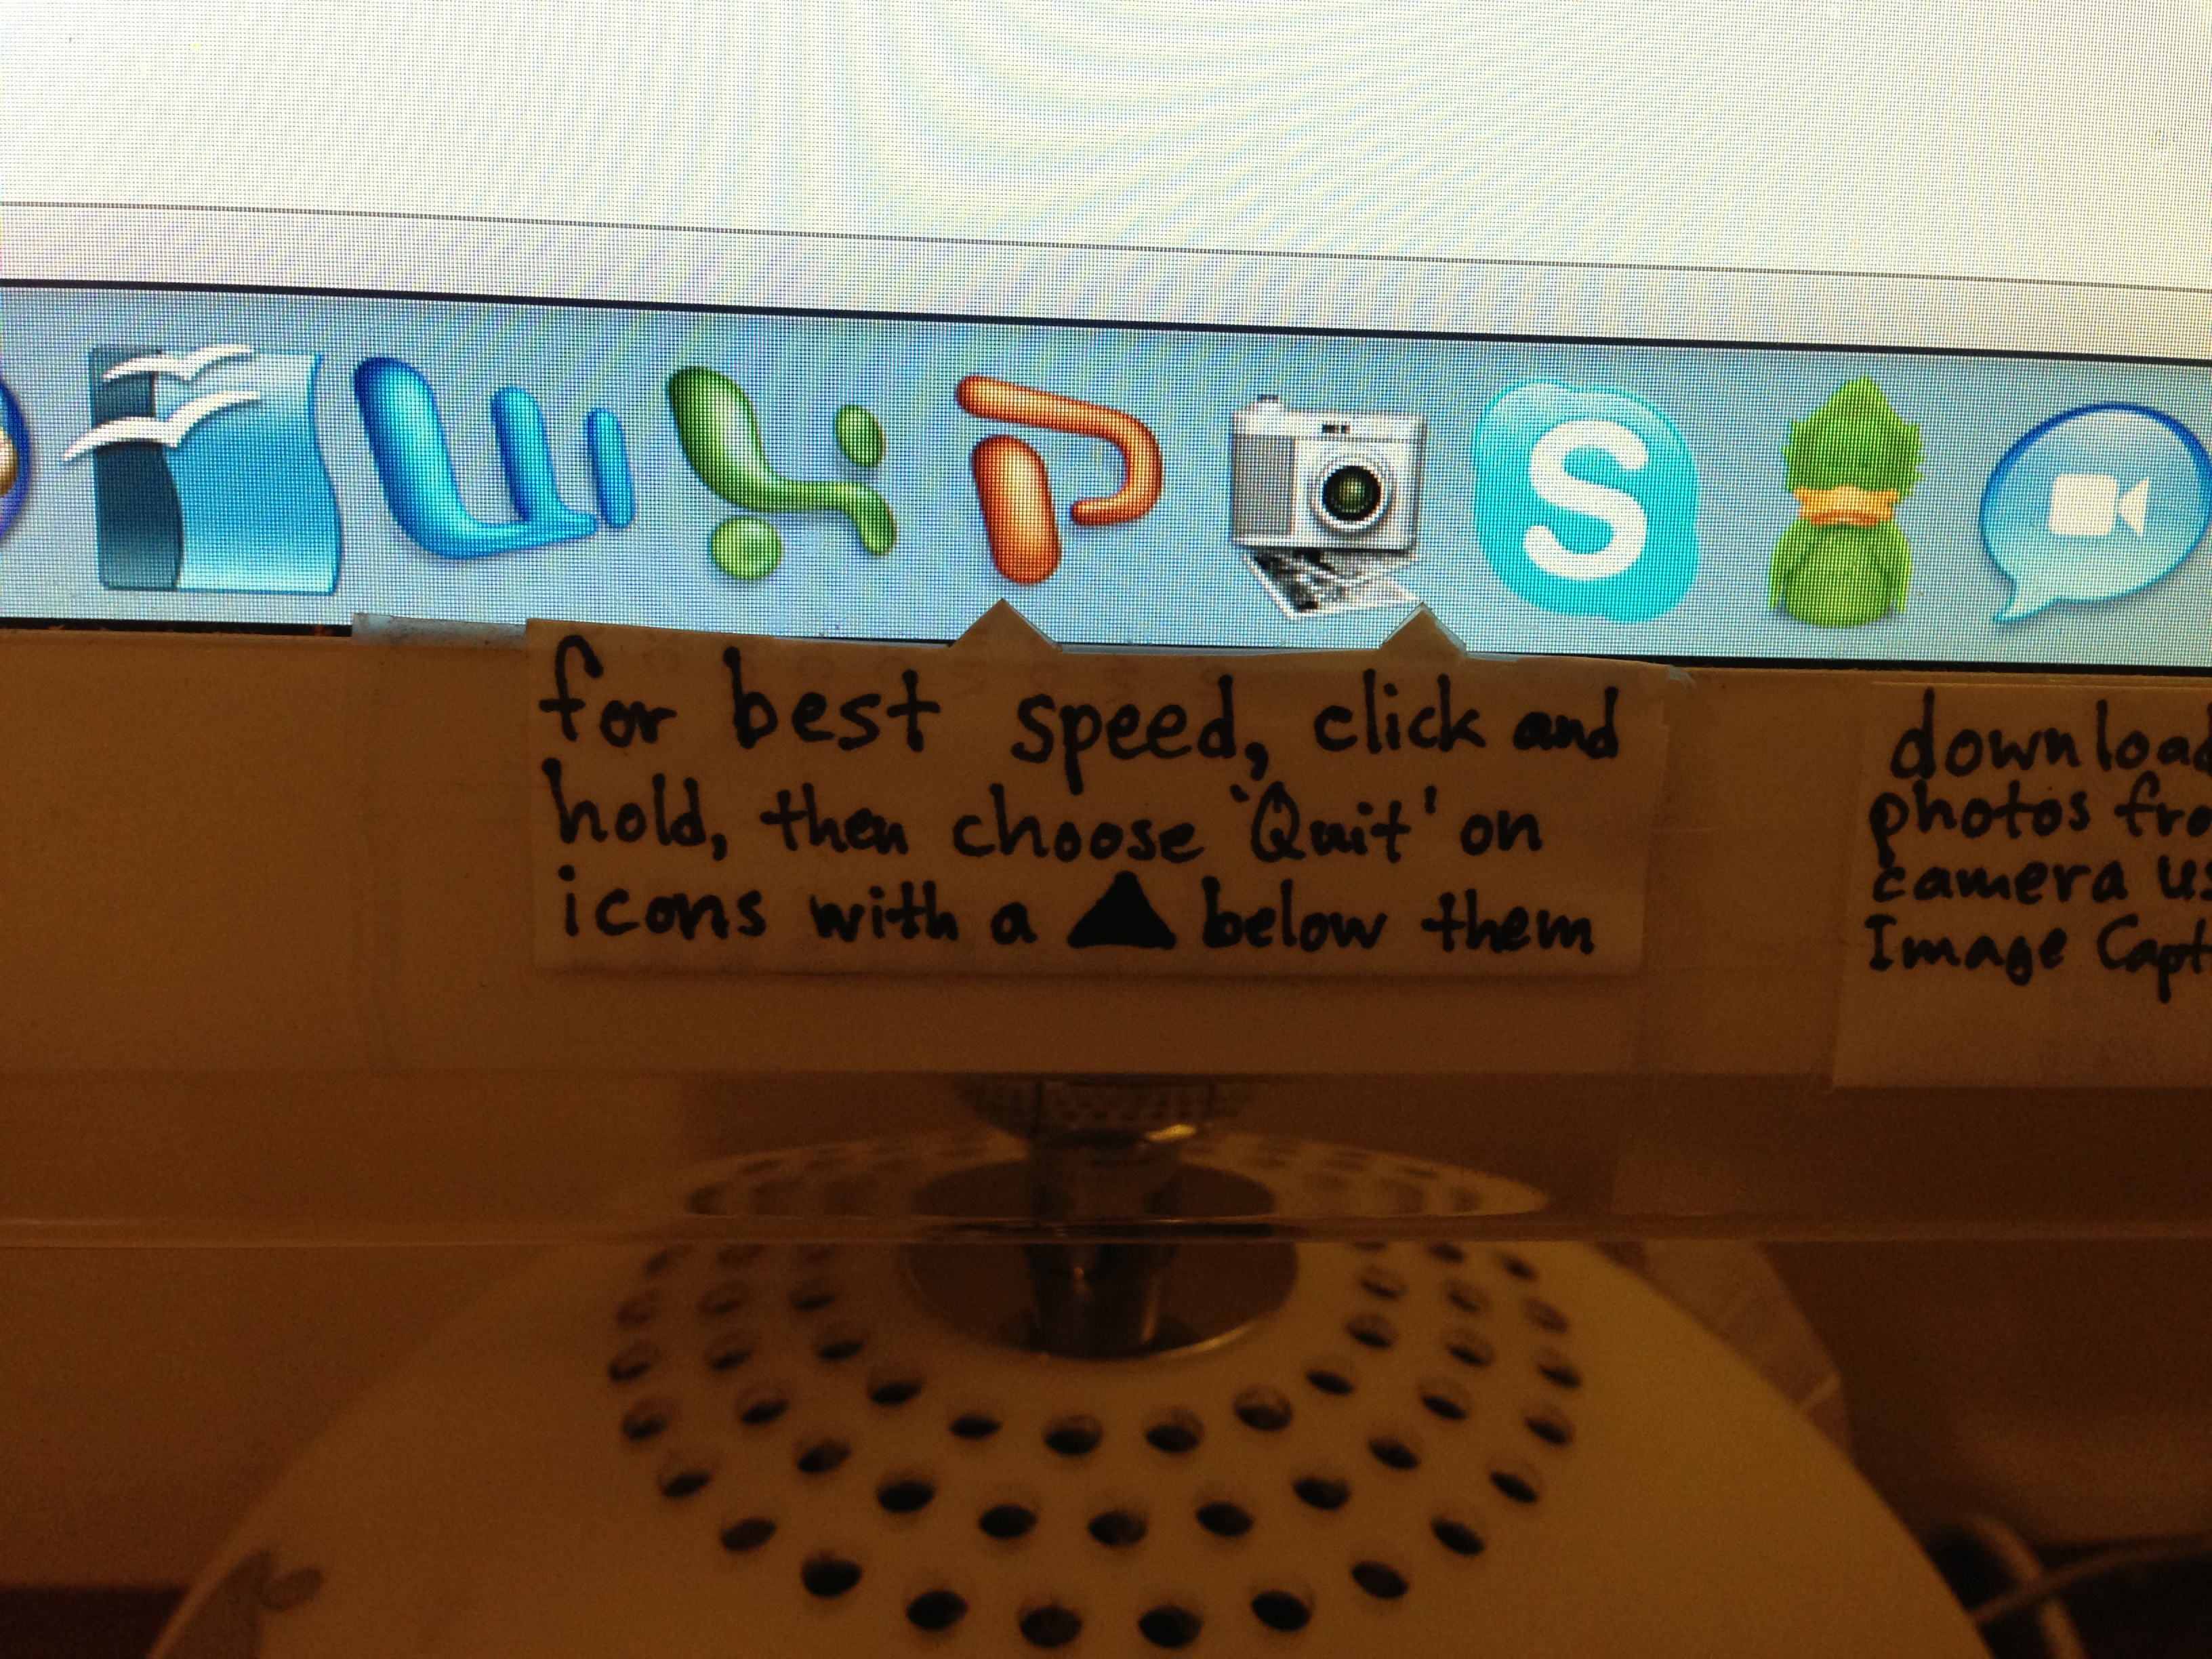 for best speed, click and
hold, then choose 'Quit' on
icons with a ▲ below them
download
photos
camera
Image